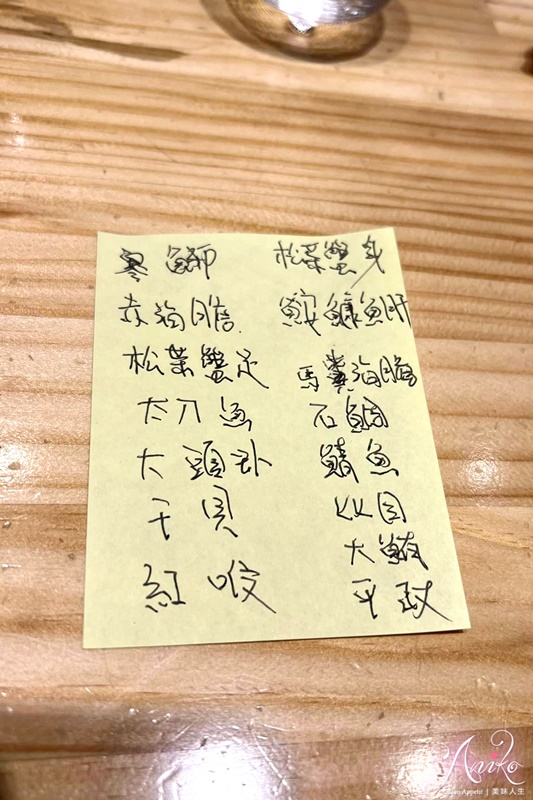 寒鰤
赤海膽
松葉蟹足
太刀魚
大頭
干貝
紅喉
松葉蟹身
鮟鱇魚肝
馬糞海膽
石鯛
鯖魚
比目
大鮪
平政
Aniko
Bon Appetit | 美味人生